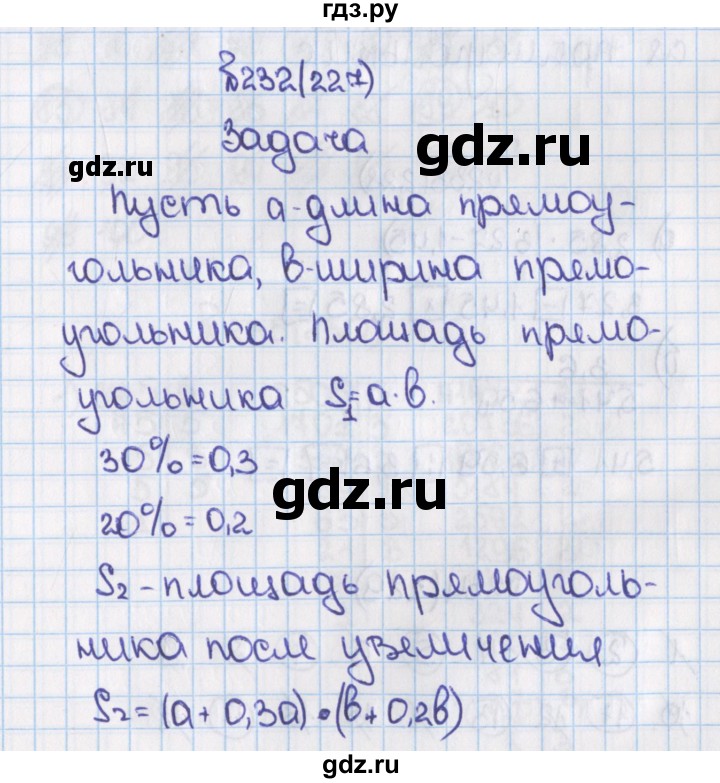 гдз.ру
№232(227)
Задача
gdz.ru
gdz.ru
Пусть а-длина прямоу-
гольника, в-ширина прямо-
угольника. Площадь прямо-
угольника S₁=а·в.
30%=0,3
gdz.ru
20%=0,2
S₂-площадь прямоуголь-
ника после увеличения
S₂=(а+0,3а)·(в+0,2в)
gdz.ru